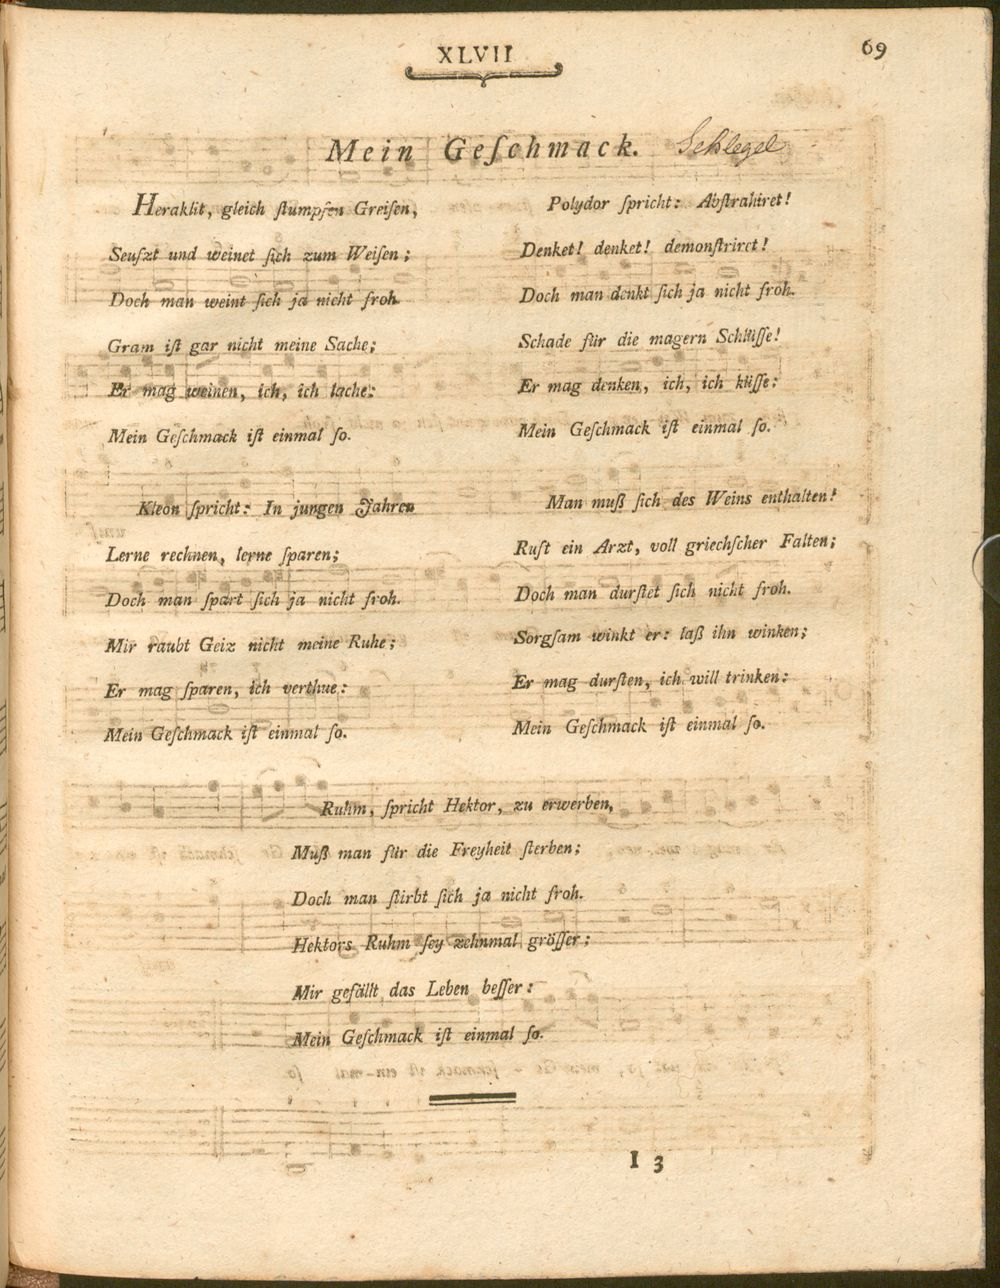 XLVII
69
Mein Geſchmack. Schlegel
Heraklit, gleich ſtumpfen Greiſen,
Seufzt und weinet ſich zum Weiſen;
Doch man weint ſich ja nicht froh.
Gram iſt gar nicht meine Sache;
Er mag weinen, ich, ich lache:
Mein Geſchmack iſt einmal ſo.
Kleon ſpricht: In jungen Jahren
Lerne rechnen, lerne ſparen;
Doch man ſpart ſich ja nicht froh.
Mir raubt Geiz nicht meine Ruhe;
Er mag ſparen, ich verthue:
Mein Geſchmack iſt einmal ſo.
Polydor ſpricht: Abſtrahiret!
Denket! denket! demonſtriret!
Doch man denkt ſich ja nicht froh.
Schade für die magern Schlüſſe!
Er mag denken, ich, ich küſſe:
Mein Geſchmack iſt einmal ſo.
Man muß ſich des Weins enthalten!
Ruft ein Arzt, voll griechſcher Falten;
Doch man durſtet ſich nicht froh.
Sorgſam winkt er: laß ihn winken;
Er mag durſten, ich will trinken:
Mein Geſchmack iſt einmal ſo.
Ruhm, ſpricht Hektor, zu erwerben,
Muß man für die Freyheit ſterben;
Doch man ſtirbt ſich ja nicht froh.
Hektors Ruhm ſey zehnmal gröſſer;
Mir gefällt das Leben beſſer:
Mein Geſchmack iſt einmal ſo.
I 3